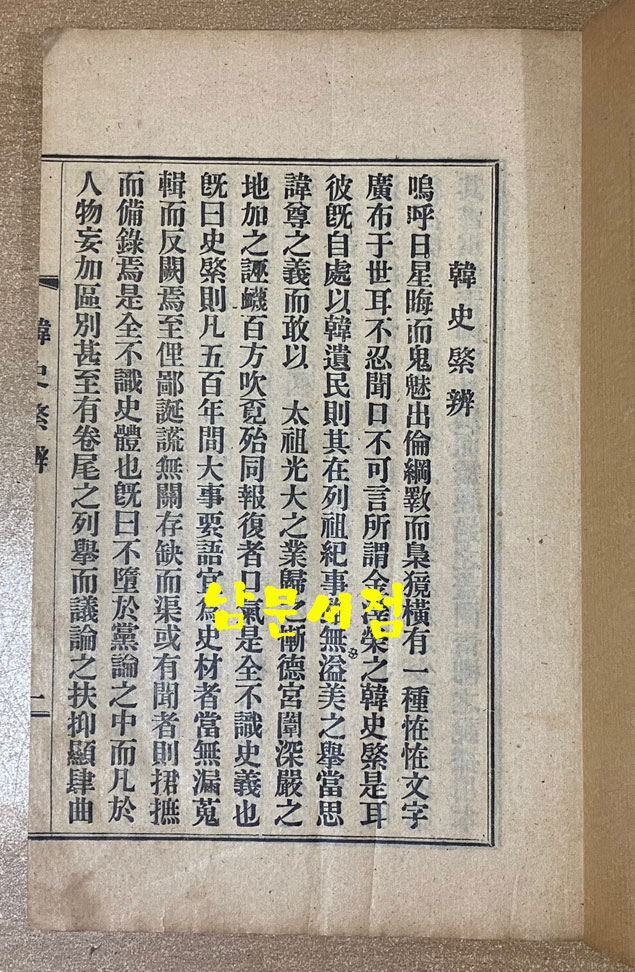 韓史綮辨
嗚呼日星晦而鬼魅出倫綱斁而梟獍橫有一種恠恠文字
廣布于世耳不忍聞口不可言所謂金澤榮之韓史綮是耳
彼旣自處以韓遺民則其在列祖紀事無溢美之擧當思
諱尊之義而敢以 太祖光大之業歸之慚德宮闈深嚴之
地加之誣衊百方吹覓殆同報復者口氣是全不識史義也
旣曰史綮則凡五百年間大事要語宜爲史材者當無漏蒐
輯而反闕焉至俚鄙誕謊無關存缺而渠或有聞者則捃摭
而備錄焉是全不識史體也旣曰不墮於黨論之中而凡於
人物妄加區別甚至有卷尾之列擧而議論之扶抑顯肆曲
韓史綮辨
一
남문서점